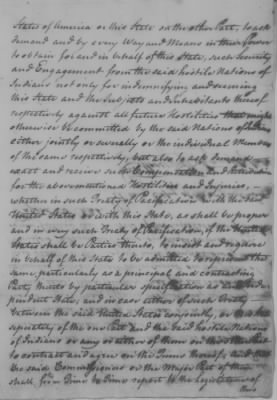 States of America or this State on the other Part, to ask
demand and by every Way and Means in their Power
to obtain for and in behalf of this State, such Security
and Engagement from the said hostile Nations of
Indians not only for indemnifying and securing
this State and the Subjects and Inhabitants thereof
respectively against all future Hostilities that might
otherwise be committed by the said Nations of Indians
either jointly or severally or the individual Members
of the same respectively, but also to ask demand
exact and receive such Compensation and
for the abovementioned Hostilities and Injuries,
whether in such Treaty of Pacification with the said
United States or with this State, as shall be proper
and in any such Treaty of Pacification, if the United
States shall be Parties thereto, to insist and require
in behalf of this State to be admitted
same, particularly as a principal and contracting
Party thereto by particular specification as an Inde
pendent State, and in case either of such Treaty
between the said United States conjointly, or
seperately of the one Part and the said hostile Nations
of Indians or any or either of them on the other Part
to contract and agree on the Terms thereof, and that
the said Commissioners or the Major Part of them
shall from Time to Time report to the Legislature of
this